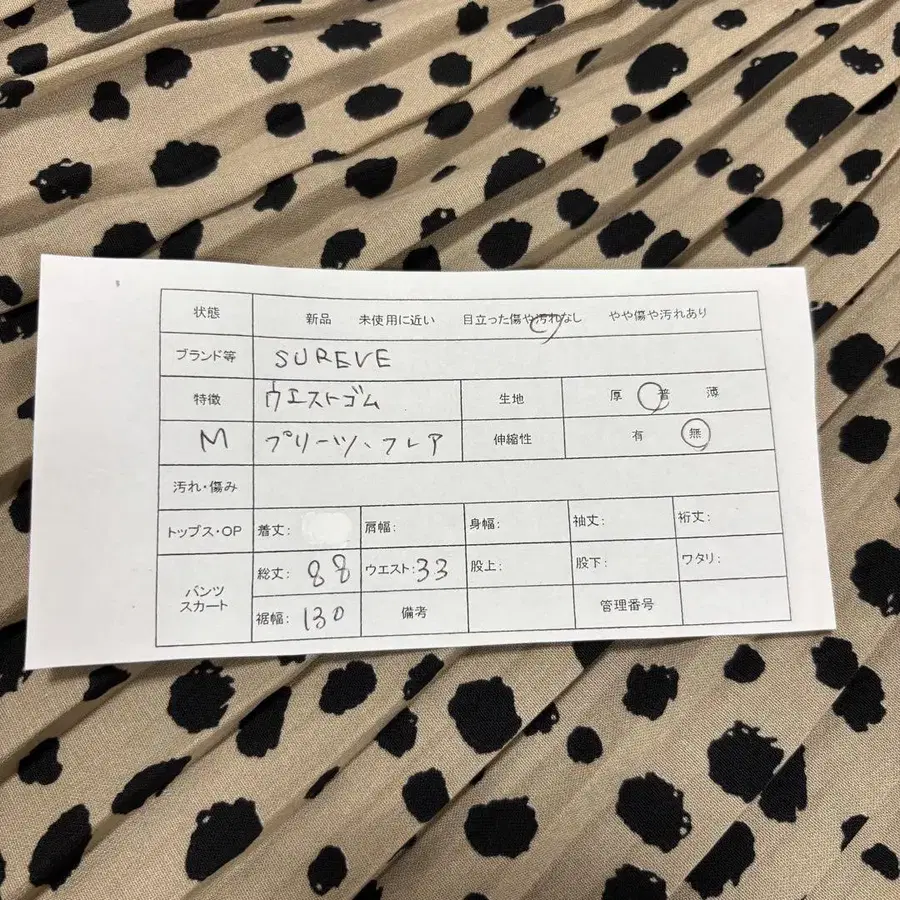 状態 新品 未使用に近い 目立った傷や汚れなし やや傷や汚れあり
ブランド等 SUREVE
特徴 ウエストゴム 生地 厚 普 薄
M プリーツ、フレア 伸縮性 有 無
汚れ・傷み
トップス・OP 着丈: 肩幅: 身幅: 袖丈: 裄丈:
パンツ スカート 総丈: 88 ウエスト: 33 股上: 股下: ワタリ:
裾幅: 130 備考 管理番号